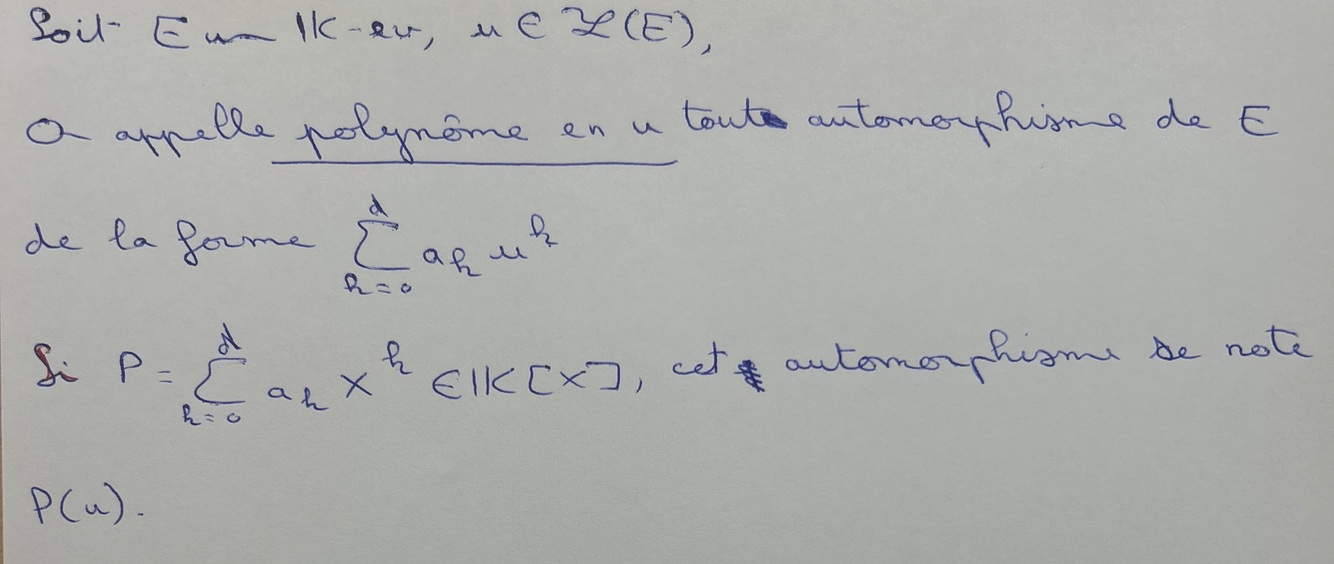 Soit E un IK-ev, u ∈ ℒ(E),
On appelle polynôme en u tout automorphisme de E
de la forme $\sum_{k=0}^{d} a_k u^k$
Si P = $\sum_{k=0}^{d} a_k X^k$ ∈ IK[X], cet automorphisme se note
P(u).